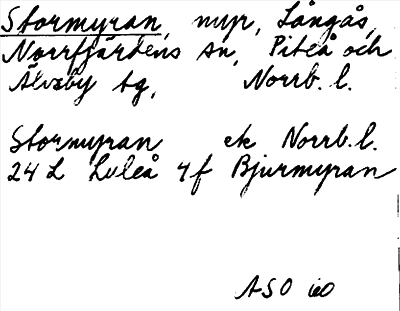 Stormyran, myr, Långås,
Norrfjärdens sn, Piteå och
Älvsby tg, Norrb. l.
Stormyran ek Norrb. l.
24 L Luleå 4f Bjurmyran
ASO